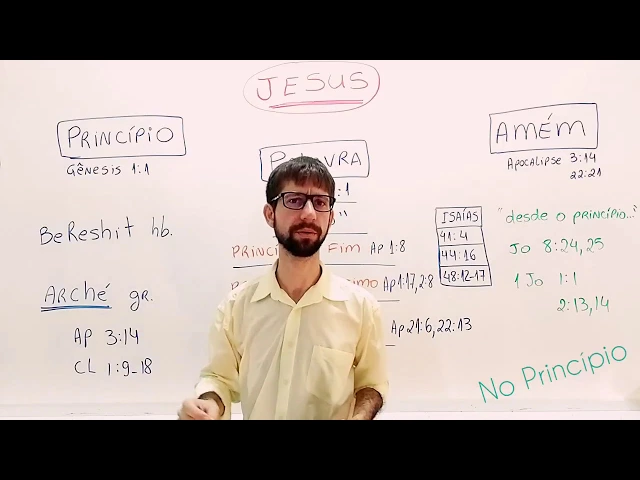 JESUS
PRINCÍPIO
GÊNESIS 1:1
BeReshit hb.
ARCHÉ gr.
AP 3:14
CL 1:9-18
:1
"
FIM Ap 1:8
Ap 1:17, 2:8
Ap 21:6, 22:13
ISAÍAS
41:4
44:16
48:12-17
AMÉM
APOCALIPSE 3:14
22:21
"desde o princípio..."
Jo 8:24,25
1 Jo 1:1
2:13,14
No Princípio